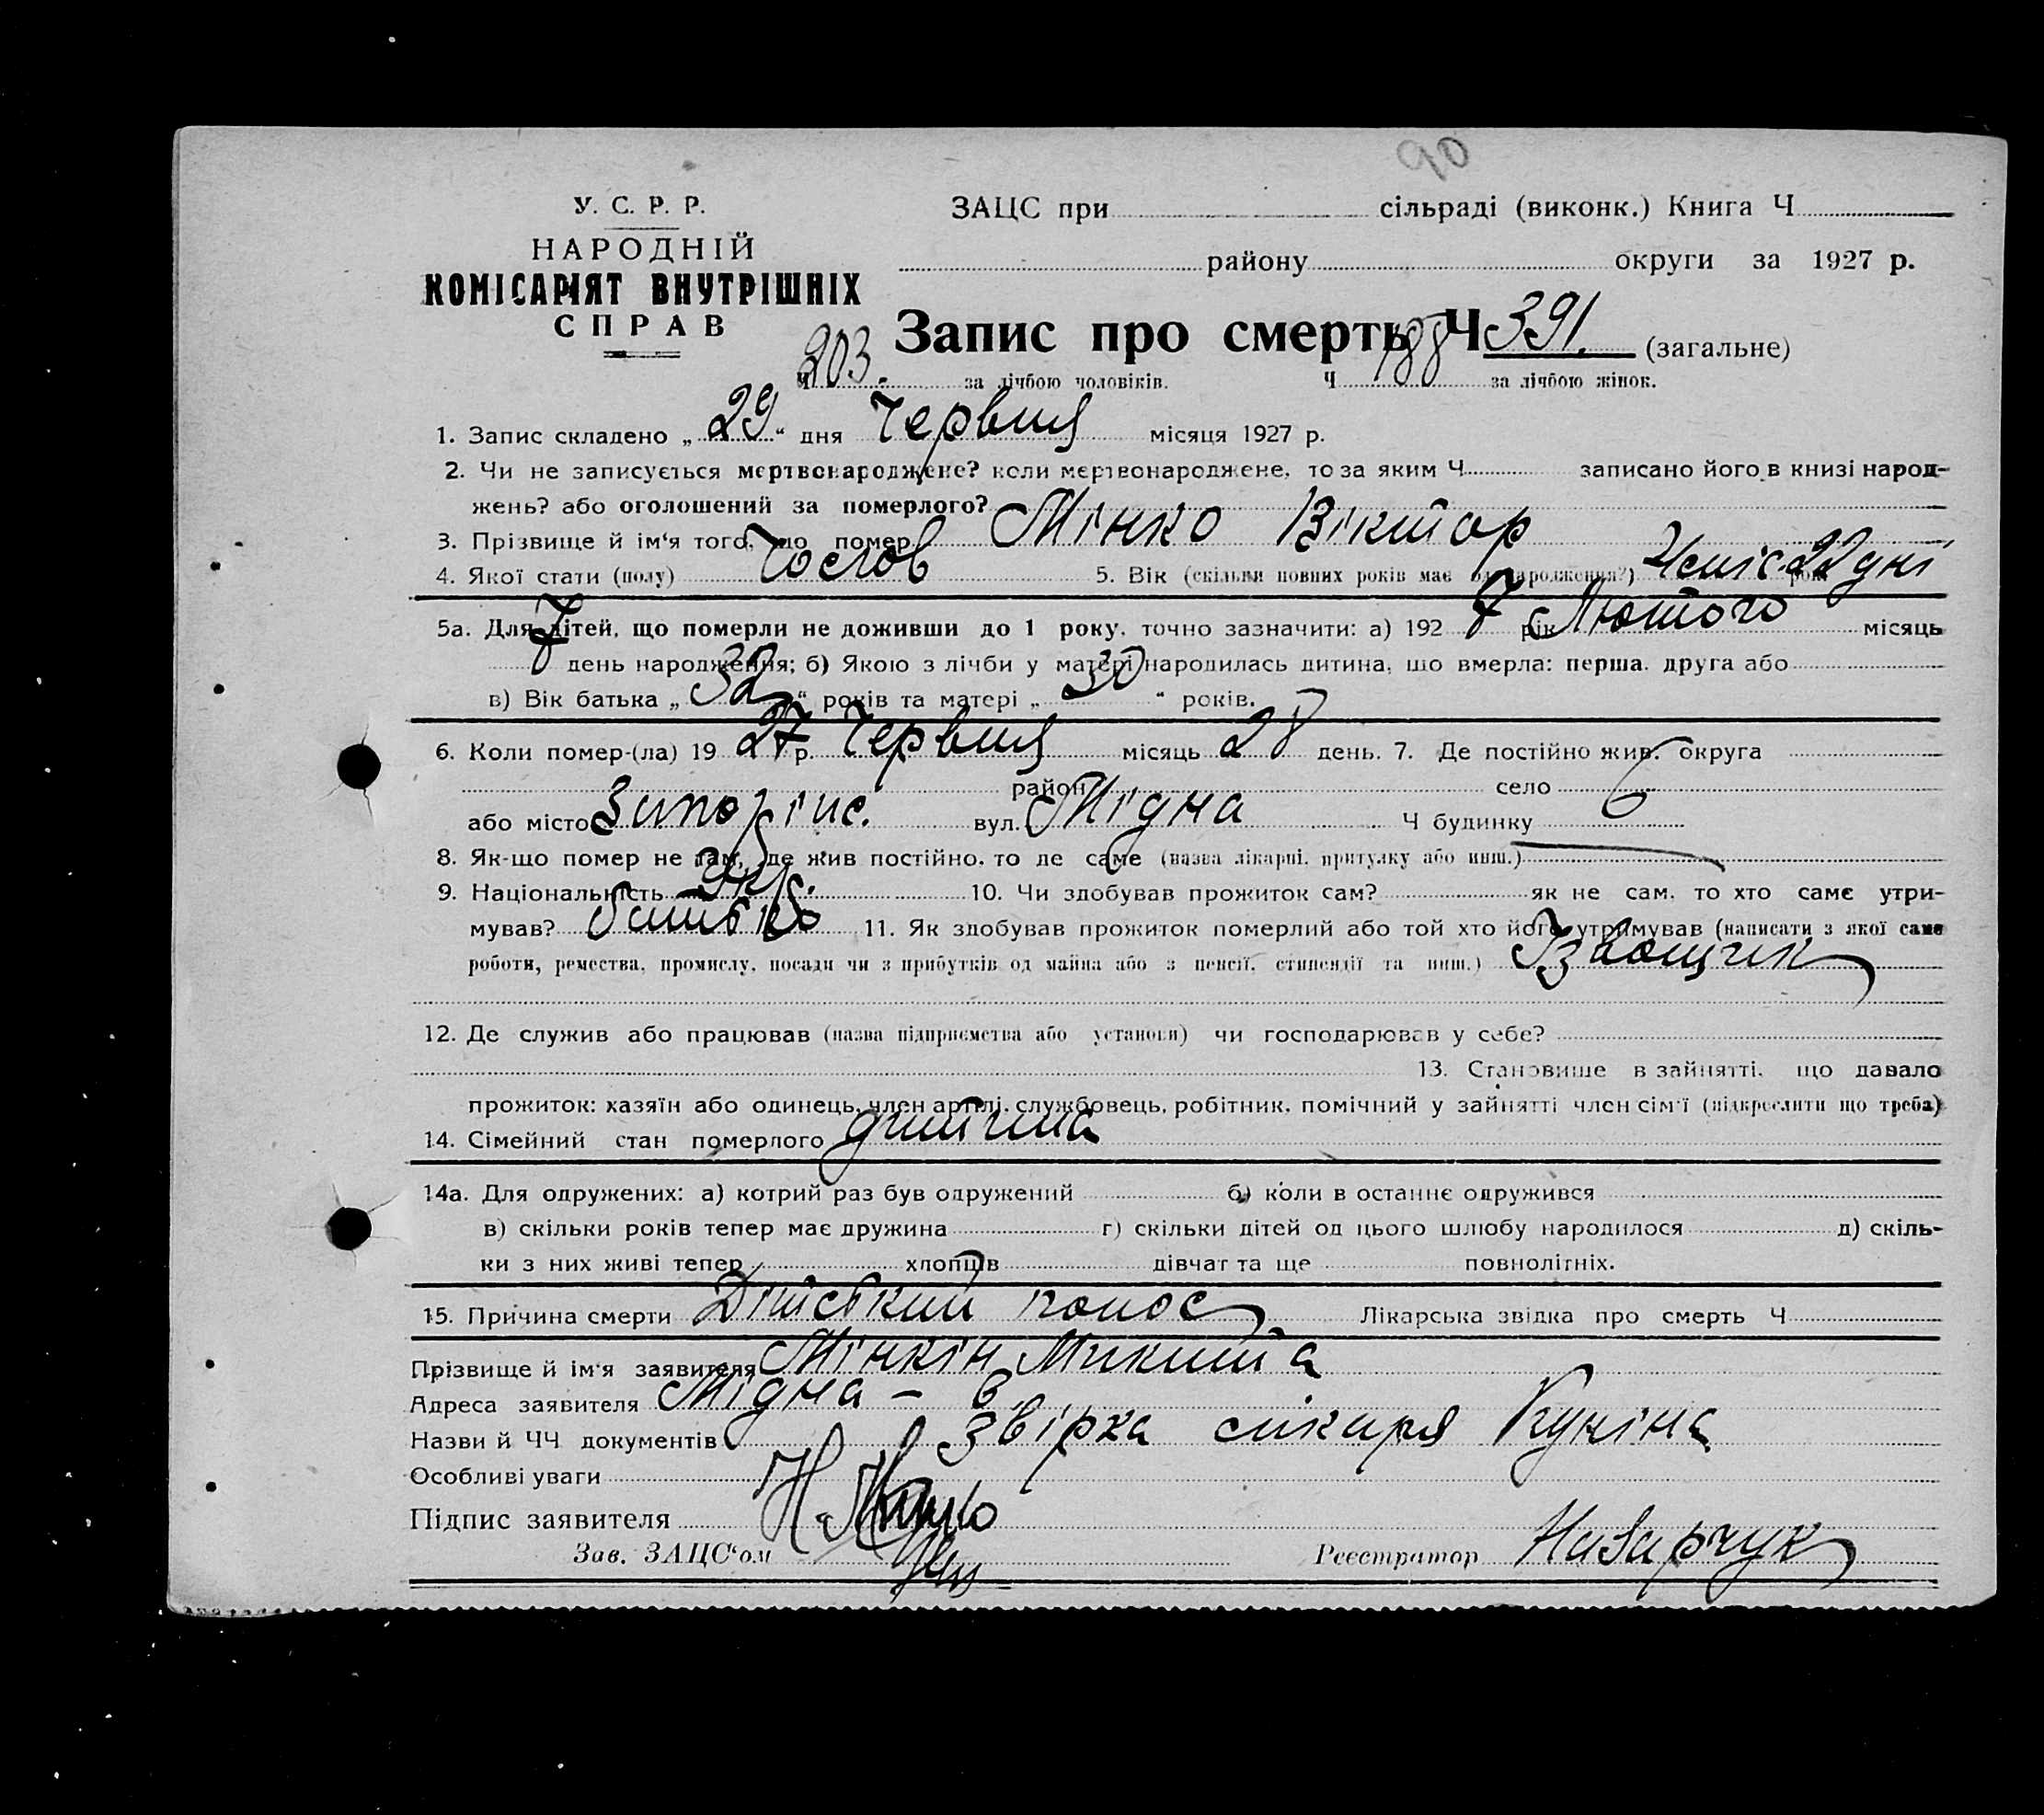 90
У. С. Р. Р.
НАРОДНІЙ
КОМІСАРІЯТ ВНУТРІШНІХ
СПРАВ
ЗАЦС при сільраді (виконк.) Книга Ч
району округи за 1927 р.
Запис про смерть Ч 391. (загальне)
Ч 203. за лічбою чоловіків. Ч 188 за лічбою жінок.
1. Запис складено „ 29 “ дня Червня місяця 1927 р.
2. Чи не записується мертвонароджене? коли мертвонароджене, то за яким Ч записано його в книзі народ-
жень? або оголошений за померлого?
3. Прізвище й ім‘я того, що помер Мінко Віктор
4. Якої стати (полу) Чолов 5. Вік (скільки повних років має од народження?) 4 міс 22 дні рок
5а. Для дітей, що померли не доживши до 1 року, точно зазначити: а) 192 7 рік Лютого місяць
7 день народження; б) Якою з лічби у матері народилась дитина, що вмерла: перша, друга або
в) Вік батька „ 32 “ років та матері „ 30 “ років.
6. Коли помер-(ла) 19 27 р. Червня місяць 28 день. 7. Де постійно жив: округа
район село
або місто Запоріж. вул. Мідна Ч будинку 6
8. Як-що помер не там, де жив постійно, то де саме (назва лікарні, притулку або инш.)
9. Національність Укр. 10. Чи здобував прожиток сам? як не сам, то хто саме утри-
мував? батько 11. Як здобував прожиток померлий або той хто його утримував (написати з якої саме
роботи, ремества, промислу, посади чи з прибутків од майна або з пенсії, стипендії та инш.) Ізвощик
12. Де служив або працював (назва підприємства або установи) чи господарював у себе?
13. Становище в зайнятті, що давало
прожиток: хазяїн або одинець, член артілі, службовець, робітник, помічний у зайнятті член сім‘ї (підкреслити що треба)
14. Сімейний стан померлого дитина
14а. Для одружених: а) котрий раз був одружений б) коли в останнє одружився
в) скільки років тепер має дружина г) скільки дітей од цього шлюбу народилося д) скіль-
ки з них живі тепер хлопців дівчат та ще повнолітніх.
15. Причина смерти Дітський понос Лікарська звідка про смерть Ч
Прізвище й ім‘я заявителя Мінкін Микита
Адреса заявителя Мідна – 6
Назви й ЧЧ документів Звірка лікаря Куніна
Особливі уваги
Підпис заявителя Н. Мінко
Зав. ЗАЦС‘ом Реєстратор Назарчук